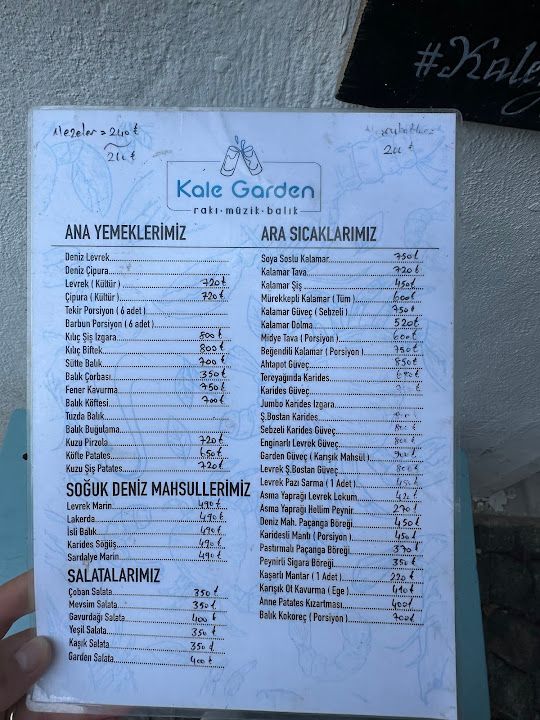 #Kale
Mezeler = 240 ₺
200 ₺
Kale Garden
rakı · müzik · balık
ANA YEMEKLERİMİZ
Deniz Levrek
Deniz Çipura
Levrek ( Kültür ) 720 ₺
Çipura ( Kültür ) 720 ₺
Tekir Porsiyon ( 6 adet )
Barbun Porsiyon ( 6 adet )
Kılıç Şiş Izgara 800 ₺
Kılıç Biftek 800 ₺
Sütte Balık 700 ₺
Balık Çorbası 350 ₺
Fener Kavurma 750 ₺
Balık Köftesi 700 ₺
Tuzda Balık
Balık Buğulama
Kuzu Pirzola 720 ₺
Köfte Patates 650 ₺
Kuzu Şiş Patates 720 ₺
SOĞUK DENİZ MAHSULLERİMİZ
Levrek Marin 490 ₺
Lakerda 490 ₺
İsli Balık 490 ₺
Karides Söğüş 490 ₺
Sardalye Marin 490 ₺
SALATALARIMIZ
Çoban Salata 350 ₺
Mevsim Salata 350 ₺
Gavurdağı Salata 400 ₺
Yeşil Salata 350 ₺
Kaşık Salata 350 ₺
Garden Salata 400 ₺
ARA SICAKLARIMIZ
Soya Soslu Kalamar 750 ₺
Kalamar Tava 720 ₺
Kalamar Şiş 450 ₺
Mürekkepli Kalamar ( Tüm ) 600 ₺
Kalamar Güveç ( Sebzeli ) 750 ₺
Kalamar Dolma 520 ₺
Midye Tava ( Porsiyon ) 600 ₺
Beğendili Kalamar ( Porsiyon ) 750 ₺
Ahtapot Güveç 850 ₺
Tereyağında Karides
Karides Güveç
Jumbo Karides Izgara
Ş.Bostan Karides
Sebzeli Karides Güveç 800 ₺
Enginarlı Levrek Güveç 800 ₺
Garden Güveç ( Karışık Mahsül ) 900 ₺
Levrek Ş.Bostan Güveç 800 ₺
Levrek Pazı Sarma ( 1 Adet )
Asma Yaprağı Levrek Lokum
Asma Yaprağı Hellim Peynir 270 ₺
Deniz Mah. Paçanga Böreği 450 ₺
Karidesli Mantı ( Porsiyon ) 450 ₺
Pastırmalı Paçanga Böreği 370 ₺
Peynirli Sigara Böreği 350 ₺
Kaşarlı Mantar ( 1 Adet ) 220 ₺
Karışık Ot Kavurma ( Ege ) 410 ₺
Anne Patates Kızartması 400 ₺
Balık Kokoreç ( Porsiyon ) 700 ₺